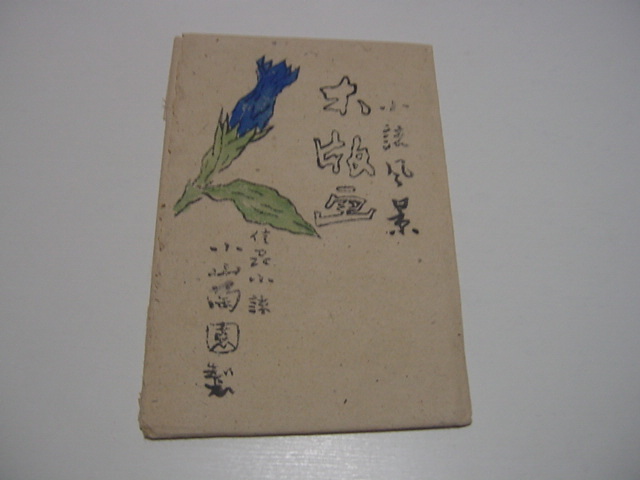 小諸风景
木版画
信州小諸
小山周園製